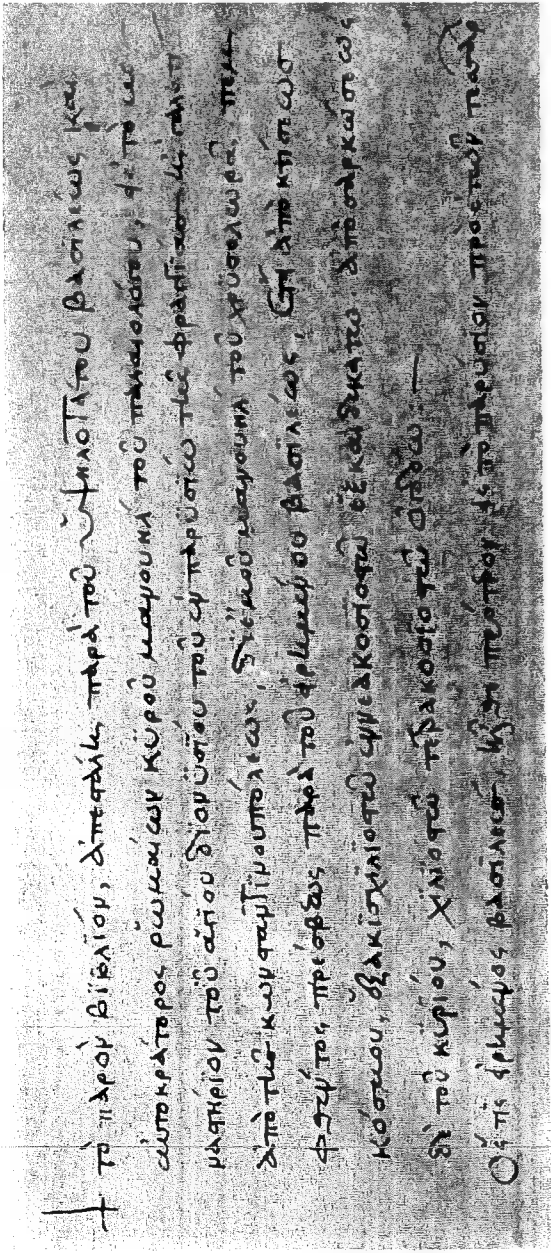 + τὸ παρὸν βϊβλΐον, ἀπεστάλη παρὰ τοῦ ὑψηλοτάτου βασιλέως καὶ
αὐτοκράτορος ῥωμαίων κυροῦ μανουὴλ τοῦ παλαιολόγου, εἰς τὸ
μαστήριον τοῦ ἁγίου διονυσίου τοῦ ἐν παρυσίω τῆς φραγγίας
ἀπὸ τῆς κωνσταντϊνουπόλεως, δι' ἐμοῦ μανουὴλ τοῦ χρυσολωρᾶ, πεμ
φθέντος πρέσβεως παρὰ τοῦ εἰρημένου βασιλέως, ἔτει ἀπὸ κτίσεως
κόσμου, ἑξακισχιλιοστῶ ἐννεακοσιοστῶ ἑξκαιδεκάτω. ἀπὸ σαρκώσεως
δὲ τοῦ κυρίου, χιλιοστῶ τετρακοσιοστῶ ὀγδόω :—
ὅστις εἰρημένος βασιλεὺς ἦλθε πρότερον εἰς τὸ παρύσιον πρὸ ἐτῶν